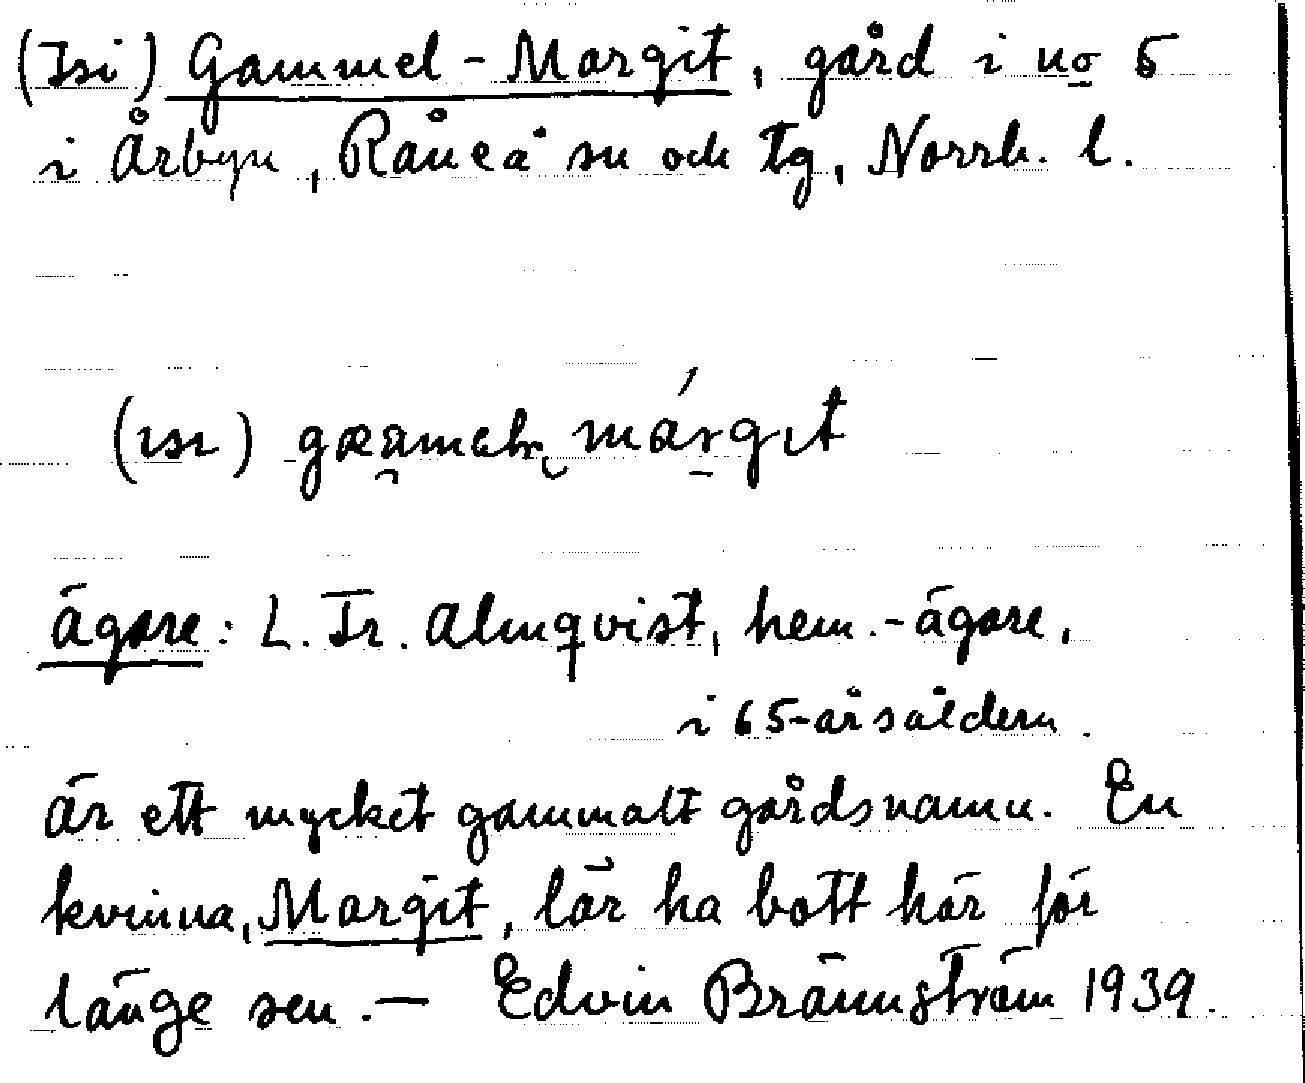 (Isi) Gammel-Margit, gård i no 5
i Årbyn, Råneå sn och tg, Norrb. l.
(ısı) gæameln márgıt
ägare: L. Fr. Almqvist, hem.-ägare,
i 65-årsåldern.
är ett mycket gammalt gårdsnamn. En
kvinna, Margit, lär ha bott här för
länge sen. — Edvin Brännström 1939.